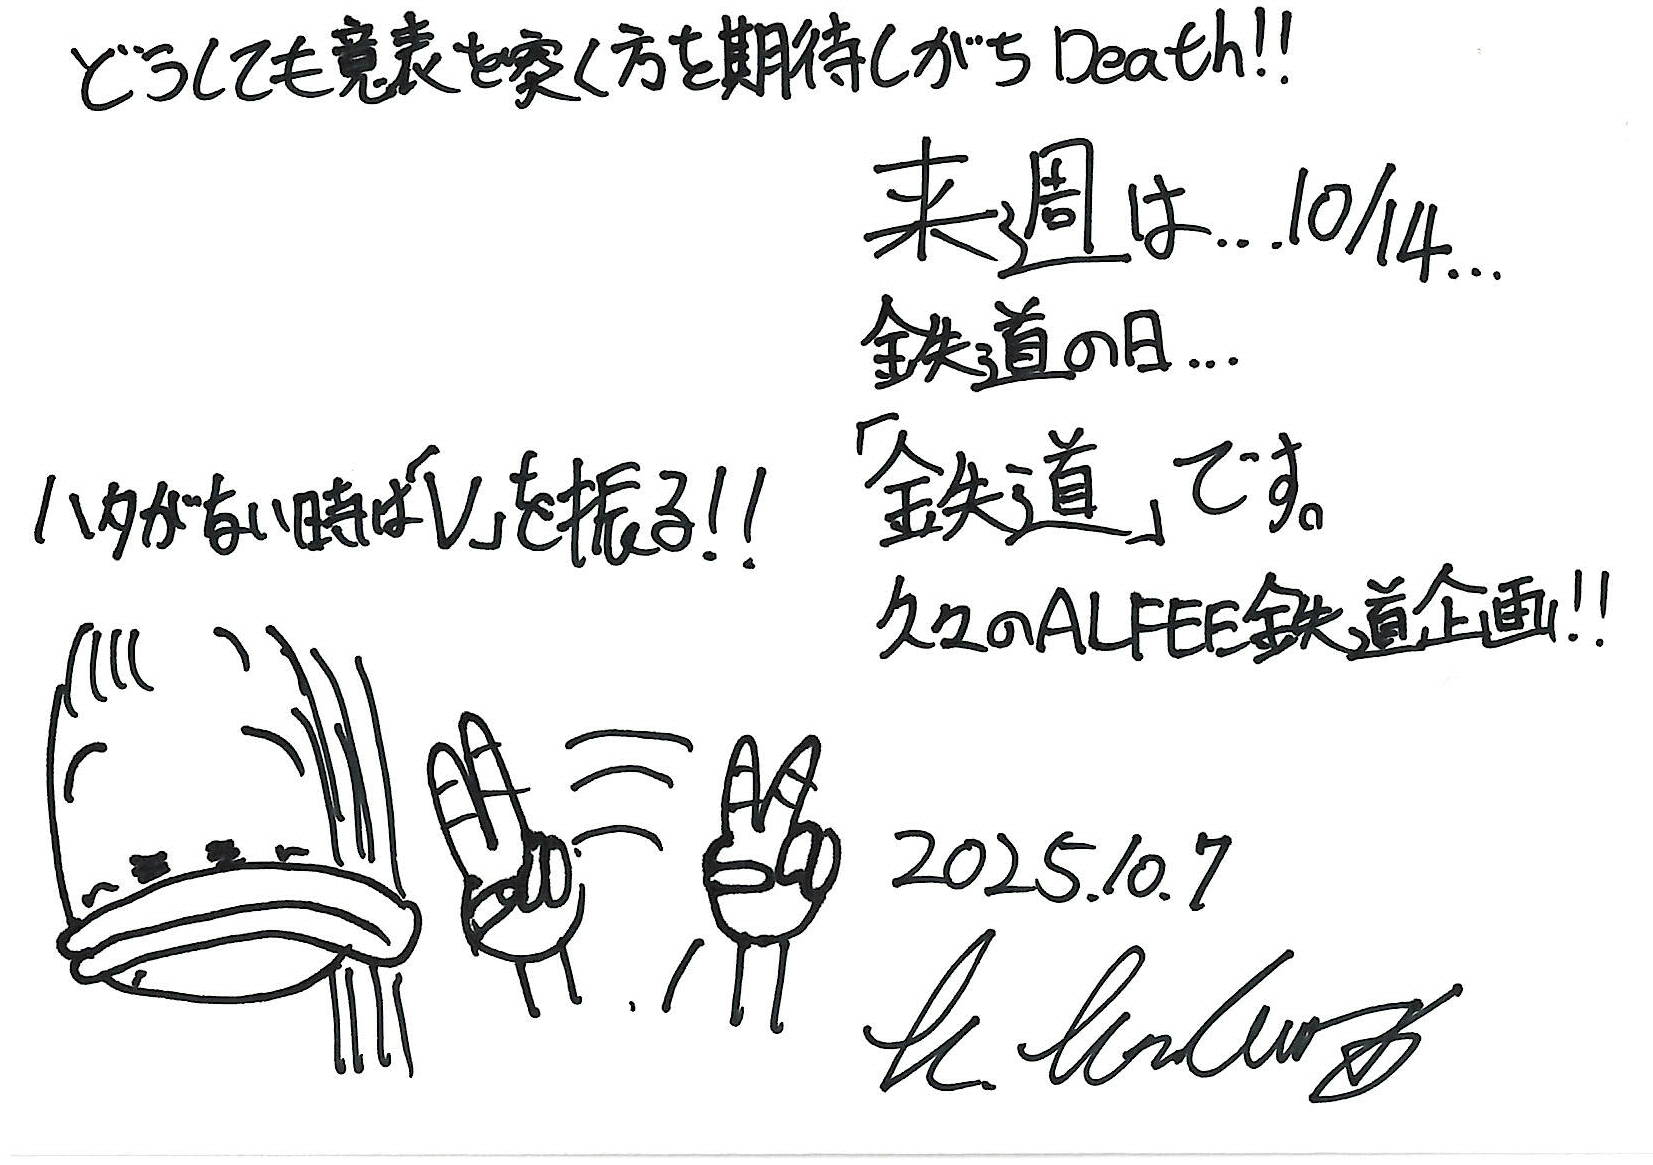 どうしても意表を突く方を期待しがちDeath!!
来週は...10/14...
鉄道の日...
「鉄道」です。
久々のALFEE鉄道企画!!
ハタがない時ば「V」を振る!!
2025.10.7